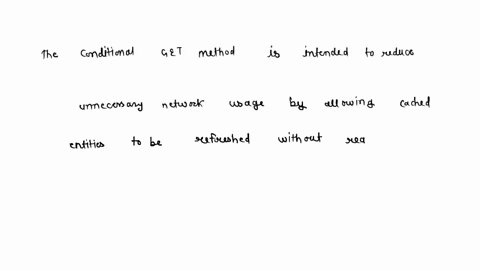 The Conditional GET method is intended to reduce
unnecessary network usage by allowing cached
entities to be refreshed without rea